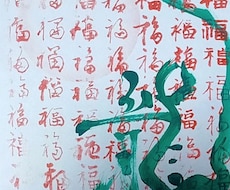 福福福福福福福
福福福福福福福
福福福福福福福
福福福福福
福福福福福
福福福福福福
福福福福福福